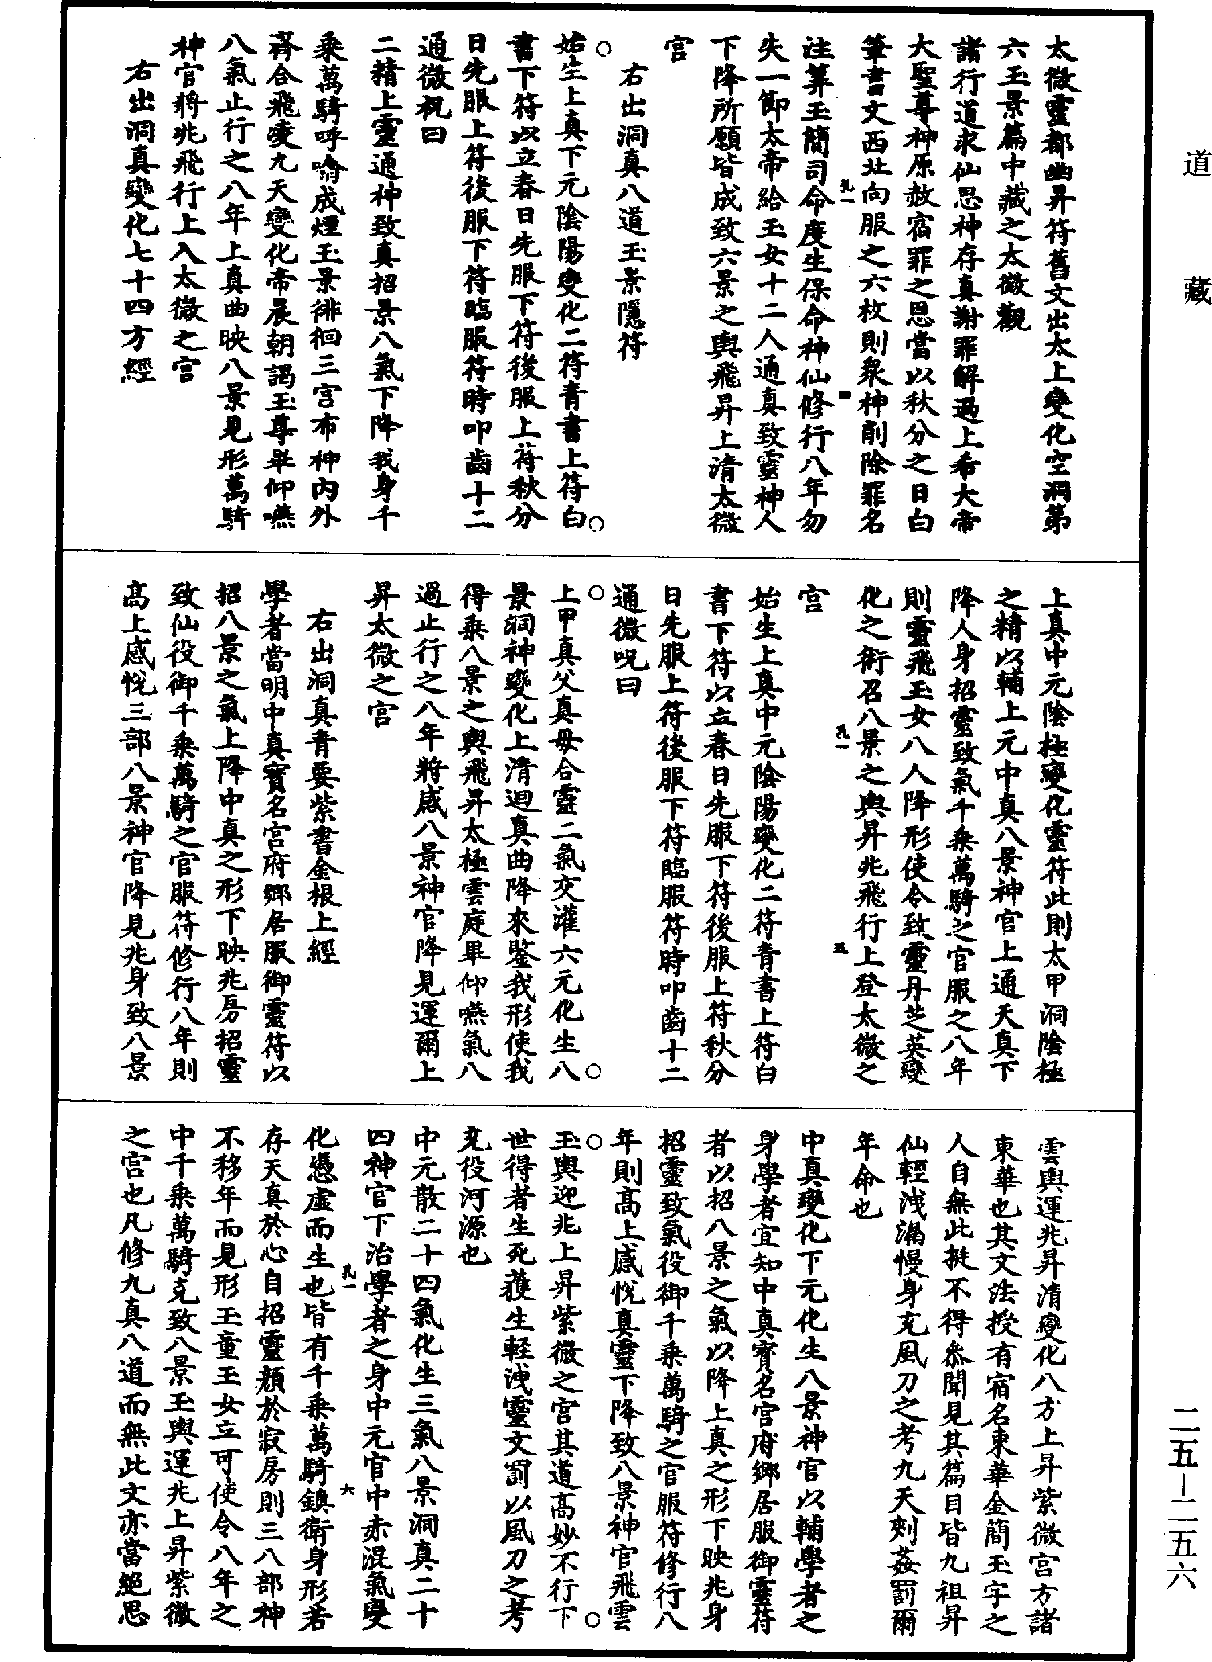 道藏
太微靈都幽昇符舊文出太上變化空洞第
六玉景篇中藏之太微觀
諸行道求仙思神存真謝罪解過上希大帝
大聖尊神原赦宿罪之恩當以秋分之日白
筆書文西北向服之六枚則衆神削除罪名
注算玉簡司命度生保命神仙修行八年勿
失一節太帝給玉女十二人通真致靈神人
下降所願皆成致六景之輿飛昇上清太微
宮
右出洞真八道玉景隱符
始生上真下元陰陽變化二符青書上符白
書下符以立春日先服下符後服上符秋分
日先服上符後服下符臨服符時叩齒十二
通微祝曰
二精上靈通神致真招景八氣下降我身千
乘萬騎呼噏成煙玉景徘徊三宮布神內外
齊合飛凌九天變化帝晨朝謁玉尊畢仰嚥
八氣止行之八年上真曲映八景見形萬騎
神官將兆飛行上入太微之宮
右出洞真變化七十四方經
上真中元陰極變化靈符此則太甲洞陰極
之精以輔上元中真八景神官上通天真下
降人身招靈致氣千乘萬騎之官服之八年
則靈飛玉女八人降形使令致靈丹芝英變
化之術召八景之輿昇兆飛行上登太微之
宮
始生上真中元陰陽變化二符青書上符白
書下符以立春日先服下符後服上符秋分
日先服上符後服下符臨服符時叩齒十二
通微呪曰
上甲真父真母合靈二氣交灌六元化生八
景洞神變化上清迴真曲降來鑒我形使我
得乘八景之輿飛昇太極雲庭畢仰嚥氣八
過止行之八年將感八景神官降見運爾上
昇太微之宮
右出洞真青要紫書金根上經
學者當明中真寶名宮府鄉居服御靈符以
招八景之氣上降中真之形下映兆房招靈
致仙役御千乘萬騎之官服符修行八年則
高上感悅三部八景神官降見兆身致八景
雲輿運兆昇清變化八方上昇紫微宮方諸
東華也其文法授有宿名東華金簡玉字之
人自無此挺不得叅聞見其篇目皆九祖昇
仙輕洩漏慢身充風刀之考九天刻姦罰爾
年命也
中真變化下元化生八景神官以輔學者之
身學者宜知中真寶名宮府鄉居服御靈符
者以招八景之氣以降上真之形下映兆身
招靈致氣役御千乘萬騎之官服符修行八
年則高上感悅真靈下降致八景神官飛雲
玉輿迎兆上昇紫微之宮其道高妙不行下
世得者生死獲生輕洩靈文罰以風刀之考
充役河源也
中元散二十四氣化生三氣八景洞真二十
四神官下治學者之身中元官中赤混氣變
化憑虛而生也皆有千乘萬騎鎮衛身形若
存天真於心自招靈顏於寂房則三八部神
不移年而見形玉童玉女立可使令八年之
中千乘萬騎克致八景玉輿運兆上昇紫微
之宮也凡修九真八道而無此文亦當絕思
二五－二五六